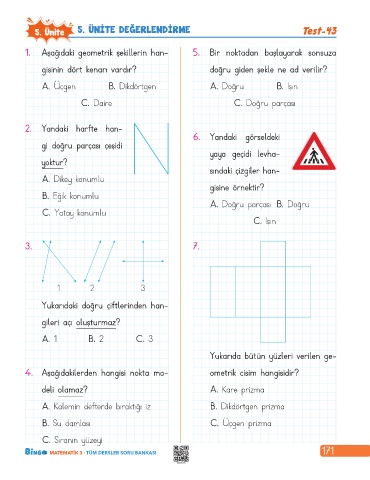 5. Ünite 5. ÜNİTE DEĞERLENDİRME Test-43
1. Aşağıdaki geometrik şekillerin han-
gisinin dört kenarı vardır?
A. Üçgen B. Dikdörtgen
C. Daire
2. Yandaki harfte han-
gi doğru parçası çeşidi
yoktur?
A. Dikey konumlu
B. Eğik konumlu
C. Yatay konumlu
3.
1 2 3
Yukarıdaki doğru çiftlerinden han-
gileri açı oluşturmaz?
A. 1 B. 2 C. 3
4. Aşağıdakilerden hangisi nokta mo-
deli olamaz?
A. Kalemin defterde bıraktığı iz
B. Su damlası
C. Sıranın yüzeyi
5. Bir noktadan başlayarak sonsuza
doğru giden şekle ne ad verilir?
A. Doğru B. Işın
C. Doğru parçası
6. Yandaki görseldeki
yaya geçidi levha-
sındaki çizgiler han-
gisine örnektir?
A. Doğru parçası B. Doğru
C. Işın
7.
Yukarıda bütün yüzleri verilen ge-
ometrik cisim hangisidir?
A. Kare prizma
B. Dikdörtgen prizma
C. Üçgen prizma
BiNGO MATEMATİK 3 - TÜM DERSLER SORU BANKASI
171